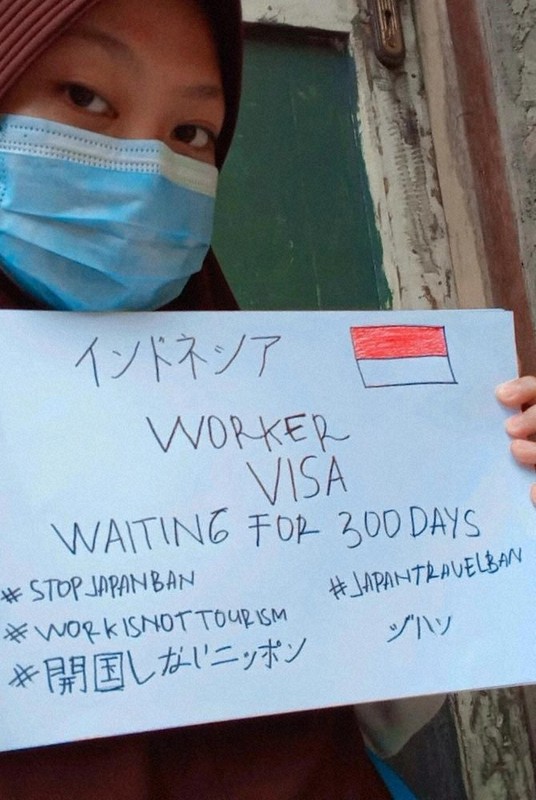 インドネシア
WORKER
VISA
WAITING FOR 300 DAYS
#STOPJAPANBAN
#JAPANTRAVELBAN
#WORKISNOTTOURISM
ジハン
#開国しないニッポン